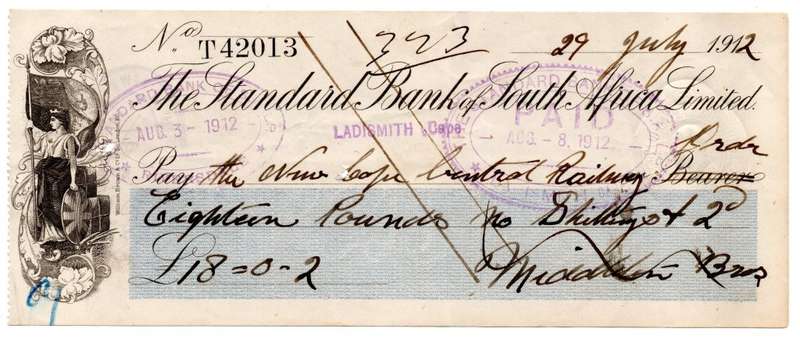 No. T 42013 323 29 July 1912
The Standard Bank of South Africa Limited.
STANDARD BANK
AUG. 3 - 1912
LADISMITH Cape
STANDARD
PAID
AUG. 8, 1912
Order
Pay the New Cape Central Railway Bearer
Eighteen Pounds no Shillings & 2d
£18=0-2 Bros